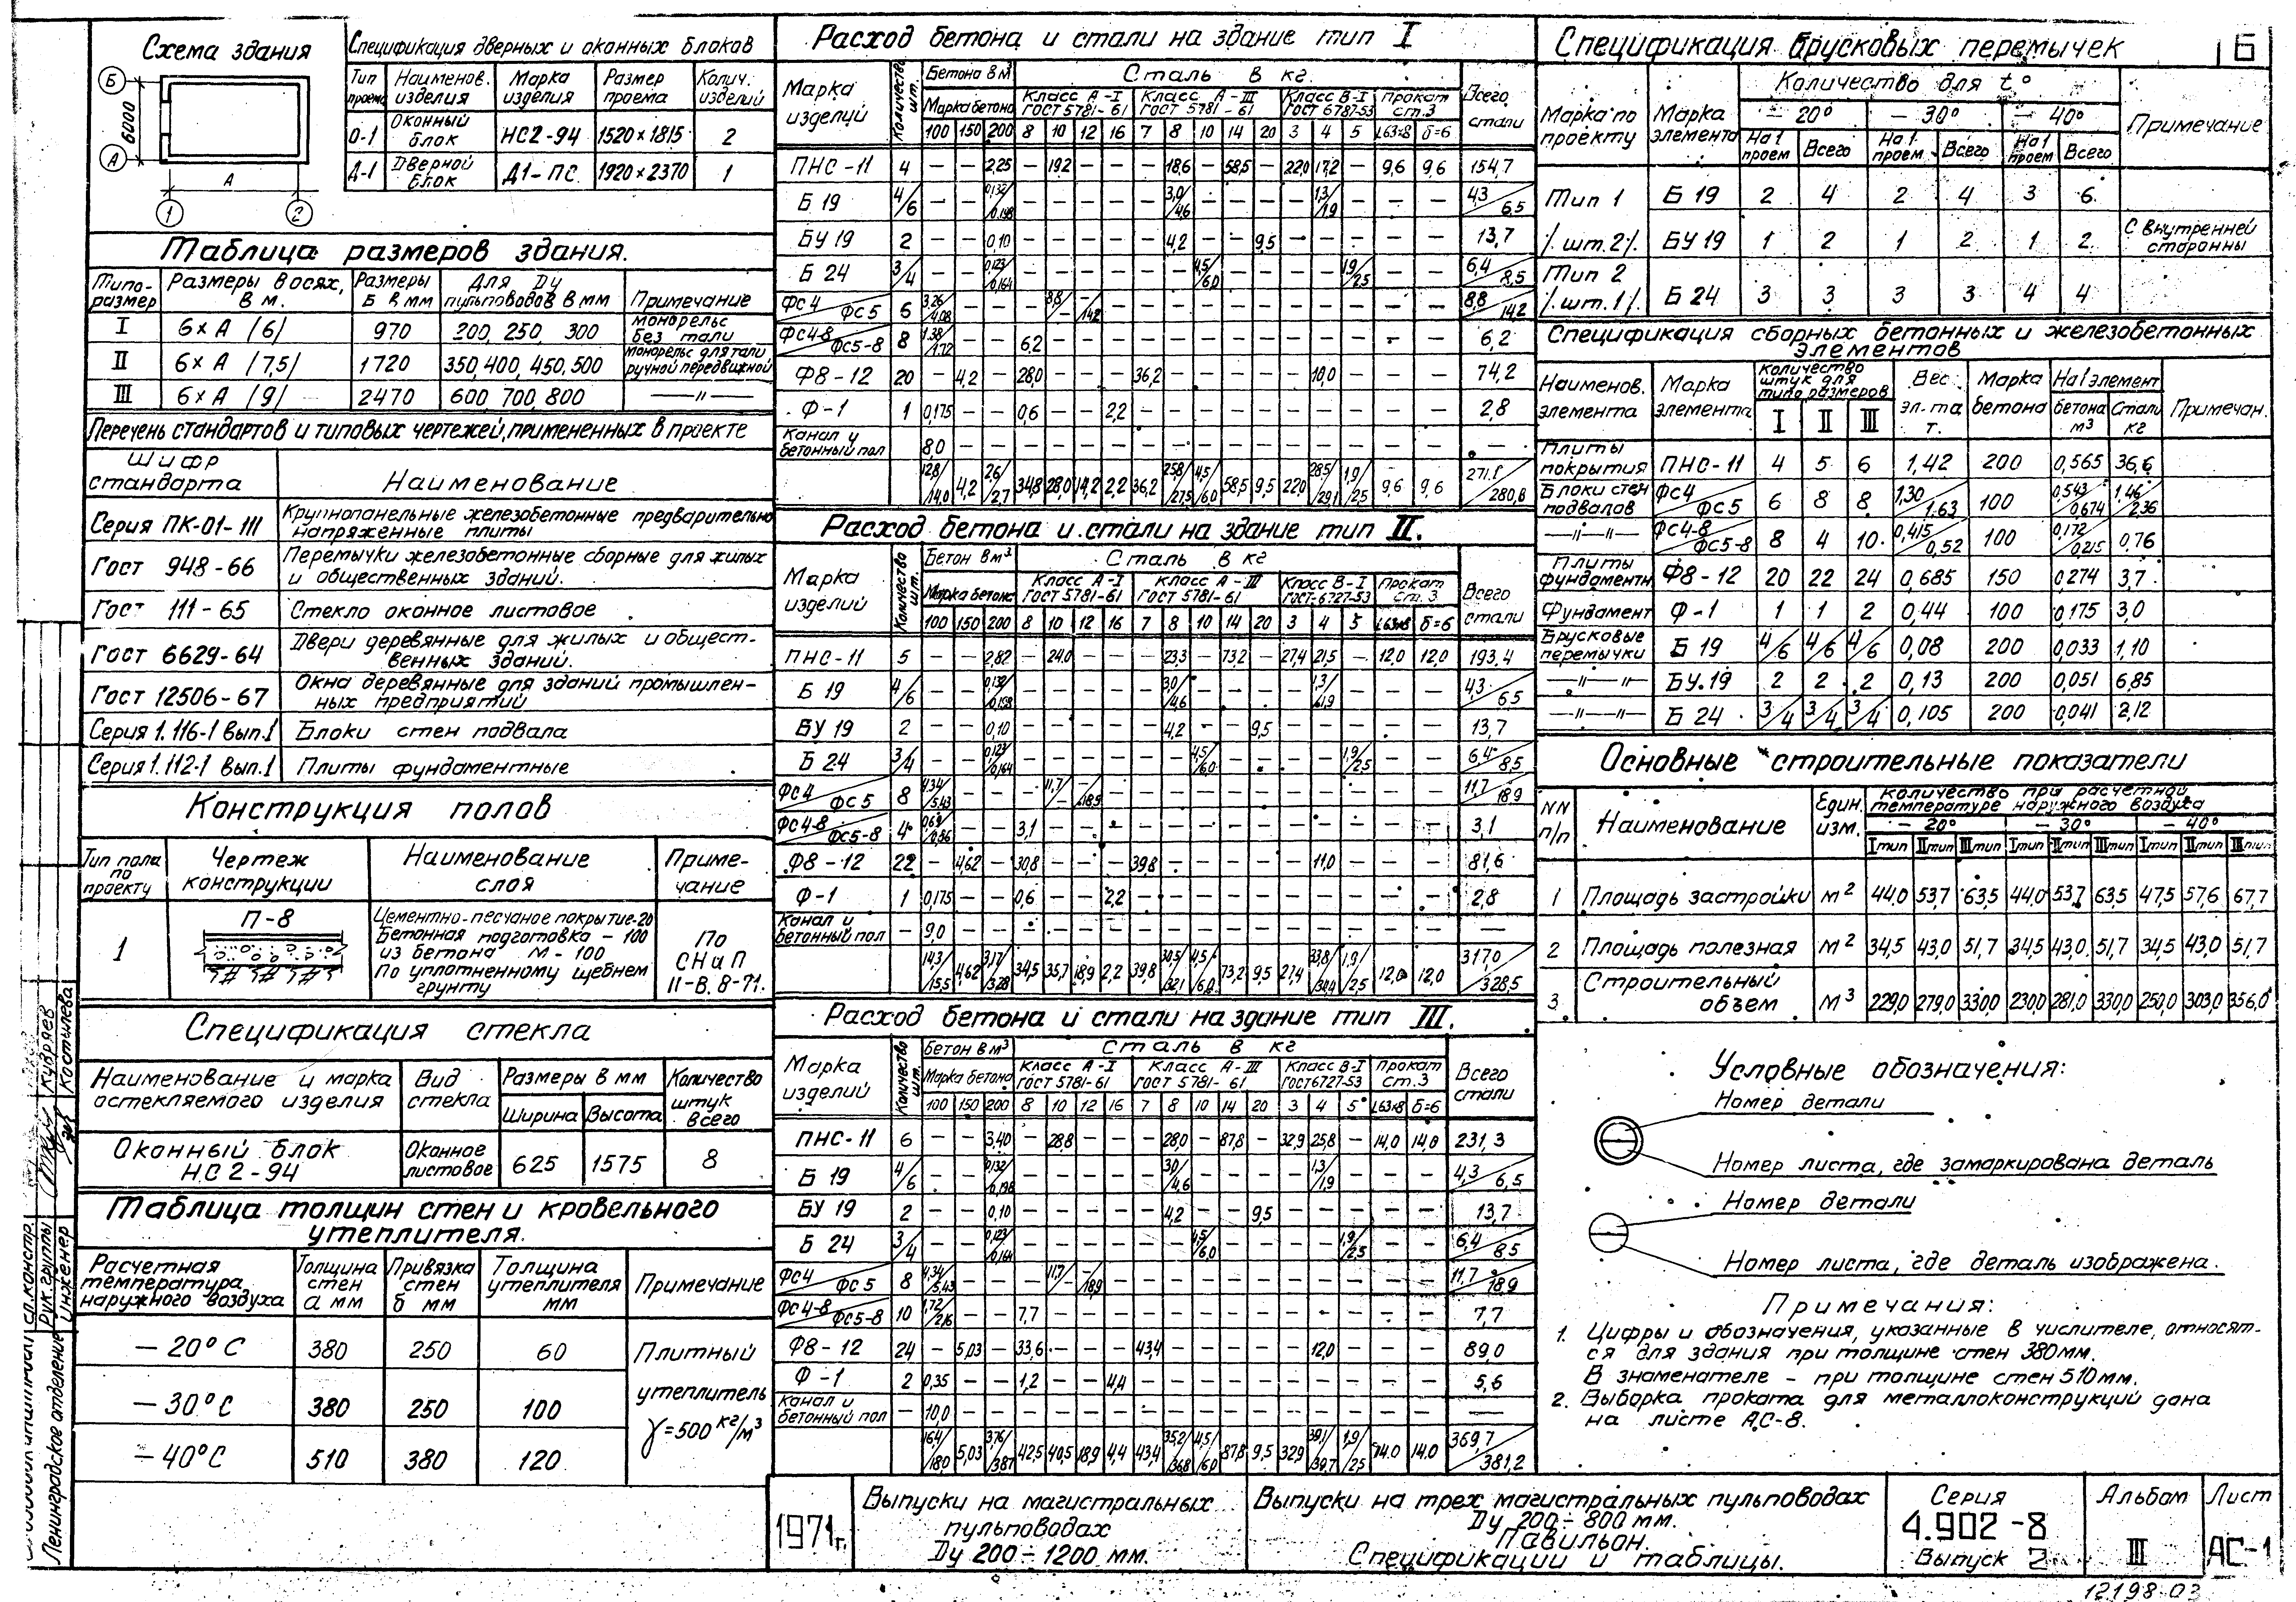 Схема здания
Б
6000
А
А
1
2
Спецификация дверных и оконных блоков
Тип проема | Наименов. изделия | Марка изделия | Размер проема | Колич. изделий
О-1 | Оконный блок | НС2-94 | 1520×1815 | 2
Д-1 | Дверной блок | Д1-ПС | 1920×2370 | 1
Таблица размеров здания.
Типо-размер | Размеры в осях, в м. | Размеры Б в мм | Для Ду пульповодов в мм | Примечание
I | 6×А /6/ | 970 | 200, 250, 300 | монорельс без тали
II | 6×А /7,5/ | 1720 | 350, 400, 450, 500 | монорельс для тали ручной передвижной
III | 6×А /9/ | 2470 | 600, 700, 800 | —"—
Перечень стандартов и типовых чертежей, примененных в проекте
Шифр стандарта | Наименование
Серия ПК-01-111 | Крупнопанельные железобетонные предварительно напряженные плиты
Гост 948-66 | Перемычки железобетонные сборные для жилых и общественных зданий.
Гост 111-65 | Стекло оконное листовое
Гост 6629-64 | Двери деревянные для жилых и общест-венных зданий.
Гост 12506-67 | Окна деревянные для зданий промышлен-ных предприятий
Серия 1.116-1 вып.1 | Блоки стен подвала
Серия 1.112-1 вып.1 | Плиты фундаментные
Конструкция полов
Тип пола по проекту | Чертеж конструкции | Наименование слоя | Приме-чание
1 | П-8 | Цементно-песчаное покрытие-20
Бетонная подготовка - 100
из бетона М-100
По уплотненному щебнем
грунту | По СНиП II-В.8-71.
Спецификация стекла
Наименование и марка остекляемого изделия | Вид стекла | Размеры в мм | Количество штук всего
Ширина | Высота
Оконный блок НС2-94 | Оконное листовое | 625 | 1575 | 8
Таблица толщин стен и кровельного
утеплителя.
Расчетная температура наружного воздуха | Толщина стен а мм | Привязка стен б мм | Толщина утеплителя мм | Примечание
-20°С | 380 | 250 | 60 | Плитный
-30°С | 380 | 250 | 100 | утеплитель
-40°С | 510 | 380 | 120 | γ=500 кг/м³
Расход бетона и стали на здание тип I
Марка изделий | Количество шт. | Бетона в м³ | Сталь в кг. | Всего стали
Марка бетона | Класс А-I ГОСТ 5781-61 | Класс А-III ГОСТ 5781-61 | Класс В-I ГОСТ 6727-53 | Прокат ст.3
100 | 150 | 200 | 8 | 10 | 12 | 16 | 7 | 8 | 10 | 14 | 20 | 3 | 4 | 5 | L63×8 | δ=6
ПНС-11 | 4 | — | — | 2,25 | — | 19,2 | — | — | — | 18,6 | — | 58,5 | — | 22,0 | 17,2 | — | 9,6 | 9,6 | 154,7
Б 19 | 4/6 | — | — | 0,132/0,198 | — | — | — | — | — | 3,0/4,6 | — | — | — | — | 1,3/1,9 | — | — | — | 4,3/6,5
БУ 19 | 2 | — | — | 0,10 | — | — | — | — | — | 4,2 | — | — | 9,5 | — | — | — | — | — | 13,7
Б 24 | 3/4 | — | — | 0,123/0,164 | — | — | — | — | — | — | 4,5/6,0 | — | — | — | — | 1,9/2,5 | — | — | 6,4/8,5
ФС4/ФС5 | 6 | 3,26/4,08 | — | — | — | 8,8/— | —/14,2 | — | — | — | — | — | — | — | — | — | — | — | 8,8/14,2
ФС4-8/ФС5-8 | 8 | 1,38/1,72 | — | — | 6,2 | — | — | — | — | — | — | — | — | — | — | — | — | — | 6,2
Ф8-12 | 20 | — | 4,2 | — | 28,0 | — | — | — | 36,2 | — | — | — | — | — | 10,0 | — | — | — | 74,2
Ф-1 | 1 | 0,175 | — | — | 0,6 | — | — | 2,2 | — | — | — | — | — | — | — | — | — | — | 2,8
Канал и бетонный пол | 8,0 | — | — | — | — | — | — | — | — | — | — | — | — | — | — | — | — | —
12,8/14,0 | 4,2 | 2,6/2,7 | 34,8 | 28,0 | 14,2 | 2,2 | 36,2 | 25,8/27,5 | 4,5/6,0 | 58,5 | 9,5 | 22,0 | 28,5/29,1 | 1,9/2,5 | 9,6 | 9,6 | 271,1/280,8
Расход бетона и стали на здание тип II.
Марка изделий | Количество шт. | Бетон в м³ | Сталь в кг | Всего стали
Марка бетона | Класс А-I ГОСТ 5781-61 | Класс А-III ГОСТ 5781-61 | Класс В-I ГОСТ-6727-53 | Прокат ст.3
100 | 150 | 200 | 8 | 10 | 12 | 16 | 7 | 8 | 10 | 14 | 20 | 3 | 4 | 5 | L63×8 | δ=6
ПНС-11 | 5 | — | — | 2,82 | — | 24,0 | — | — | — | 23,3 | — | 73,2 | — | 27,4 | 21,5 | — | 12,0 | 12,0 | 193,4
Б 19 | 4/6 | — | — | 0,132/0,198 | — | — | — | — | — | 3,0/4,6 | — | — | — | — | 1,3/1,9 | — | — | — | 4,3/6,5
БУ 19 | 2 | — | — | 0,10 | — | — | — | — | — | 4,2 | — | — | 9,5 | — | — | — | — | — | 13,7
Б 24 | 3/4 | — | — | 0,123/0,164 | — | — | — | — | — | — | 4,5/6,0 | — | — | — | — | 1,9/2,5 | — | — | 6,4/8,5
ФС4/ФС5 | 8 | 4,34/5,43 | — | — | — | 11,7/— | —/18,9 | — | — | — | — | — | — | — | — | — | — | — | 11,7/18,9
ФС4-8/ФС5-8 | 4 | 0,69/0,86 | — | — | 3,1 | — | — | — | — | — | — | — | — | — | — | — | — | — | 3,1
Ф8-12 | 22 | — | 4,62 | — | 30,8 | — | — | — | 39,8 | — | — | — | — | — | 11,0 | — | — | — | 81,6
Ф-1 | 1 | 0,175 | — | — | 0,6 | — | — | 2,2 | — | — | — | — | — | — | — | — | — | — | 2,8
Канал и бетонный пол | — | 9,0 | — | — | — | — | — | — | — | — | — | — | — | — | — | — | — | — | —
14,3/15,5 | 4,62 | 3,17/3,28 | 34,5 | 35,7 | 18,9 | 2,2 | 39,8 | 30,5/32,1 | 4,5/6,0 | 73,2 | 9,5 | 27,4 | 33,8/34,4 | 1,9/2,5 | 12,0 | 12,0 | 317,0/328,5
Расход бетона и стали на здание тип III.
Марка изделий | Количество шт. | Бетон в м³ | Сталь в кг | Всего стали
Марка бетона | Класс А-I ГОСТ 5781-61 | Класс А-III ГОСТ 5781-61 | Класс В-I ГОСТ 6727-53 | Прокат ст.3
100 | 150 | 200 | 8 | 10 | 12 | 16 | 7 | 8 | 10 | 14 | 20 | 3 | 4 | 5 | L63×8 | δ=6
ПНС-11 | 6 | — | — | 3,40 | — | 28,8 | — | — | — | 28,0 | — | 87,8 | — | 32,9 | 25,8 | — | 14,0 | 14,0 | 231,3
Б 19 | 4/6 | — | — | 0,132/0,198 | — | — | — | — | — | 3,0/4,6 | — | — | — | — | 1,3/1,9 | — | — | — | 4,3/6,5
БУ 19 | 2 | — | — | 0,10 | — | — | — | — | — | 4,2 | — | — | 9,5 | — | — | — | — | — | 13,7
Б 24 | 3/4 | — | — | 0,123/0,164 | — | — | — | — | — | — | 4,5/6,0 | — | — | — | — | 1,9/2,5 | — | — | 6,4/8,5
ФС4/ФС5 | 8 | 4,34/5,43 | — | — | — | 11,7/— | —/18,9 | — | — | — | — | — | — | — | — | — | — | — | 11,7/18,9
ФС4-8/ФС5-8 | 10 | 1,72/2,16 | — | — | 7,7 | — | — | — | — | — | — | — | — | — | — | — | — | — | 7,7
Ф8-12 | 24 | — | 5,03 | — | 33,6 | — | — | — | 43,4 | — | — | — | — | — | 12,0 | — | — | — | 89,0
Ф-1 | 2 | 0,35 | — | — | 1,2 | — | — | 4,4 | — | — | — | — | — | — | — | — | — | — | 5,6
Канал и бетонный пол | — | 10,0 | — | — | — | — | — | — | — | — | — | — | — | — | — | — | — | — | —
16,4/18,0 | 5,03 | 3,76/3,87 | 42,5 | 40,5 | 18,9 | 4,4 | 43,4 | 35,2/36,8 | 4,5/6,0 | 87,8 | 9,5 | 32,9 | 39,1/39,7 | 1,9/2,5 | 14.0 | 14.0 | 369,7/381,2
Спецификация брусковых перемычек
16
Марка по проекту | Марка элемента | Количество для t° | Примечание
-20° | -30° | -40°
На 1 проем | Всего | На 1 проем | Всего | На 1 проем | Всего
Тип 1 | Б 19 | 2 | 4 | 2 | 4 | 3 | 6
/шт.2/ | БУ 19 | 1 | 2 | 1 | 2 | 1 | 2 | С внутренней стороны
Тип 2 /шт.1/ | Б 24 | 3 | 3 | 3 | 3 | 4 | 4
Спецификация сборных бетонных и железобетонных
элементов
Наименов. элемента | Марка элемента | Количество штук для типоразмеров | Вес эл-та т. | Марка бетона | На 1 элемент | Примечан.
I | II | III | бетона м³ | Стали кг
Плиты покрытия | ПНС-11 | 4 | 5 | 6 | 1,42 | 200 | 0,565 | 36,6
Блоки стен подвалов | ФС4/ФС5 | 6 | 8 | 8 | 1,30/1,63 | 100 | 0,543/0,674 | 1,46/2,36
—"—"— | ФС4-8/ФС5-8 | 8 | 4 | 10 | 0,415/0,52 | 100 | 0,172/0,215 | 0,76
Плиты фундаментн | Ф8-12 | 20 | 22 | 24 | 0,685 | 150 | 0,274 | 3,7
Фундамент | Ф-1 | 1 | 1 | 2 | 0,44 | 100 | 0,175 | 3,0
Брусковые перемычки | Б 19 | 4/6 | 4/6 | 4/6 | 0,08 | 200 | 0,033 | 1,10
—"—"— | БУ.19 | 2 | 2 | 2 | 0,13 | 200 | 0,051 | 6,85
—"—"— | Б 24 | 3/4 | 3/4 | 3/4 | 0,105 | 200 | 0,041 | 2,12
Основные строительные показатели
NN п/п | Наименование | Един. изм. | Количество при расчетной температуре наружного воздуха
-20° | -30° | -40°
I тип | II тип | III тип | I тип | II тип | III тип | I тип | II тип | III тип
1 | Площадь застройки | м² | 44,0 | 53,7 | 63,5 | 44,0 | 53,7 | 63,5 | 47,5 | 57,6 | 67,7
2 | Площадь полезная | м² | 34,5 | 43,0 | 51,7 | 34,5 | 43,0 | 51,7 | 34,5 | 43,0 | 51,7
3 | Строительный объем | м³ | 229,0 | 279,0 | 330,0 | 230,0 | 281,0 | 330,0 | 250,0 | 303,0 | 356,0
Условные обозначения:
Номер детали
Номер листа, где замаркирована деталь
Номер детали
Номер листа, где деталь изображена.
Примечания:
1. Цифры и обозначения, указанные в числителе, относят-
ся для здания при толщине стен 380мм.
В знаменателе - при толщине стен 510мм.
2. Выборка проката для металлоконструкций дана
на листе АС-8.
1971г.
Выпуски на магистральных
пульповодах
Ду 200-1200 мм.
Выпуски на трех магистральных пульповодах
Ду 200-800 мм.
Павильон.
Спецификации и таблицы.
Серия
4.902-8
Выпуск 2
Альбом
III
Лист
АС-1
12198-03
Ленинградское отделение
Гл.констр.
Рук.группы
Инженер
Кувряев
Костылева